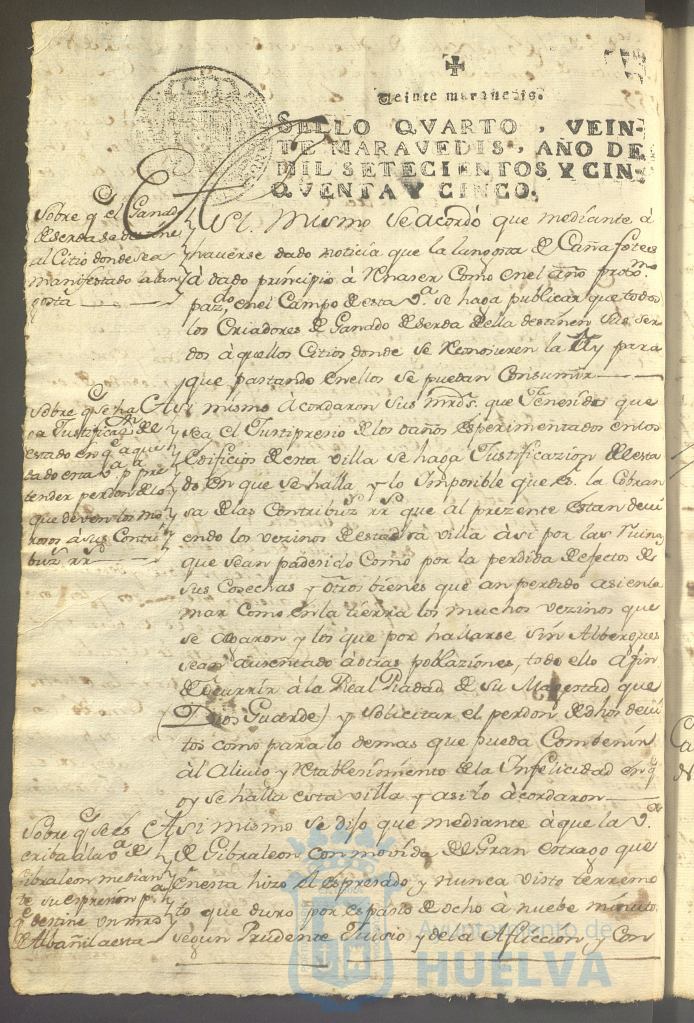 Veinte maravedis.
SELLO QVARTO, VEIN-
TE MARAVEDIS, AÑO DE
MIL SETECIENTOS Y CIN-
QVENTA Y CINCO.
Sobre q el Ganado
de serda se destine
al Citio donde sea
manifestado la lan
gosta
Asi mismo se acordò que mediante à
haverse dado noticia que la langosta de Cañafotees
à dado principio à Renaser como en el año proxmo
pazdo en el Campo de esta Va se haga publicar que todos
los Criadores de Ganado de serda de ella destinen sus ser
dos à quellos Citios donde se reconosieren la ay para
que pastando en ellos se puedan Consumir
Sobre q se ha
ga Justificazn del
estado en q a que
dado esta va pa pre
tender perdon de lo
que deven los mo
rosos à sus Contri
buzs rrs
Asi mismo Acordaron sus mrds. que Tenerido que
sea el Justiprecio de los daños esperimentados en los
edificios de esta villa se haga Justificazion del esta
do en que se halla y lo Imposible que es la Cobran
sa de las Contribuzs rrs que al prezente estan devi
endo los vezinos de esta dha villa àsi por las Ruinas
que sean padesido como por la perdida de efectos de
sus Cosechas y otros bienes que an perdido asi en la
mar como en la tierra los muchos vezinos que
se aogaron y los que por hallarse sin Albergues
sean ausentado à otras poblaziones, todo ello à fin
de Recurrir à la Real Piadad de su Magestad que
(Dios Guarde) y solicitar el perdon de dhos devi
tos como para lo demas que pueda Combenir
àl Alivio y restablesimiento de la Infelicidad en q
oy se halla esta villa y asi lo àcordaron
Sobre q se es
criba à la va de
Gibraleon median
te su espresion pa
q destine un mro
de Albañil a esta
Asi mismo se dijo que mediante à que la Va
de Gibraleon conmovida del Gran estrago que
en esta hizo el espresado y nunca visto terremo
to que duro por espasio de ocho a nuebe minuto
segun Prudente Juisio y de la Afliccion y Con
Ayuntamiento de
HUELVA